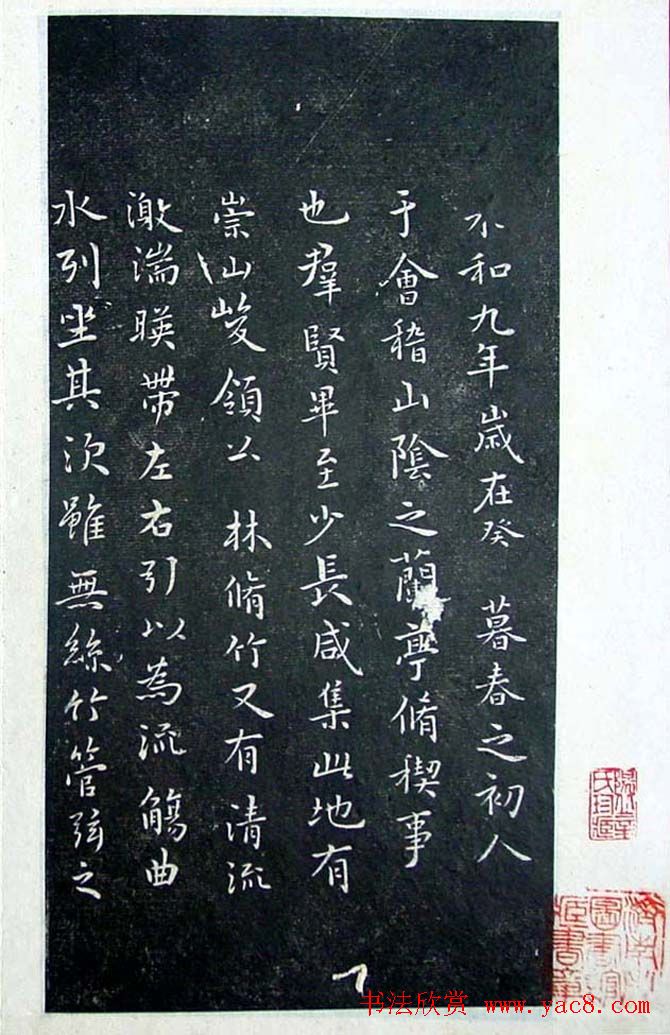 不和九年歲在癸 暮春之初人
于會稽山陰之蘭亭脩稧事
也羣賢畢至少長咸集此地有
崇山峻領公 林脩竹又有清流
激湍暎帶左右引以為流觴曲
水列坐其次雖無絲竹管弦之
书法欣赏 www.yac8.com